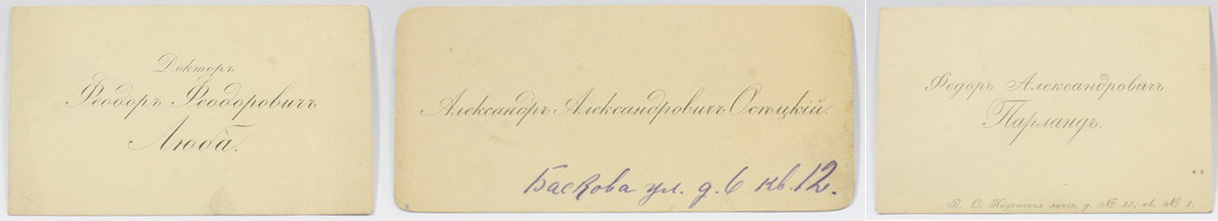 Докторъ
Ѳеодоръ Ѳеодоровичъ
Люба.
Александръ Александровичъ Осѣцкій.
Баскова ул. д. 6 кв. 12.
Федоръ Александровичъ
Парландъ.
В. О. Кадетская линія, д. № 23, кв. № 2.